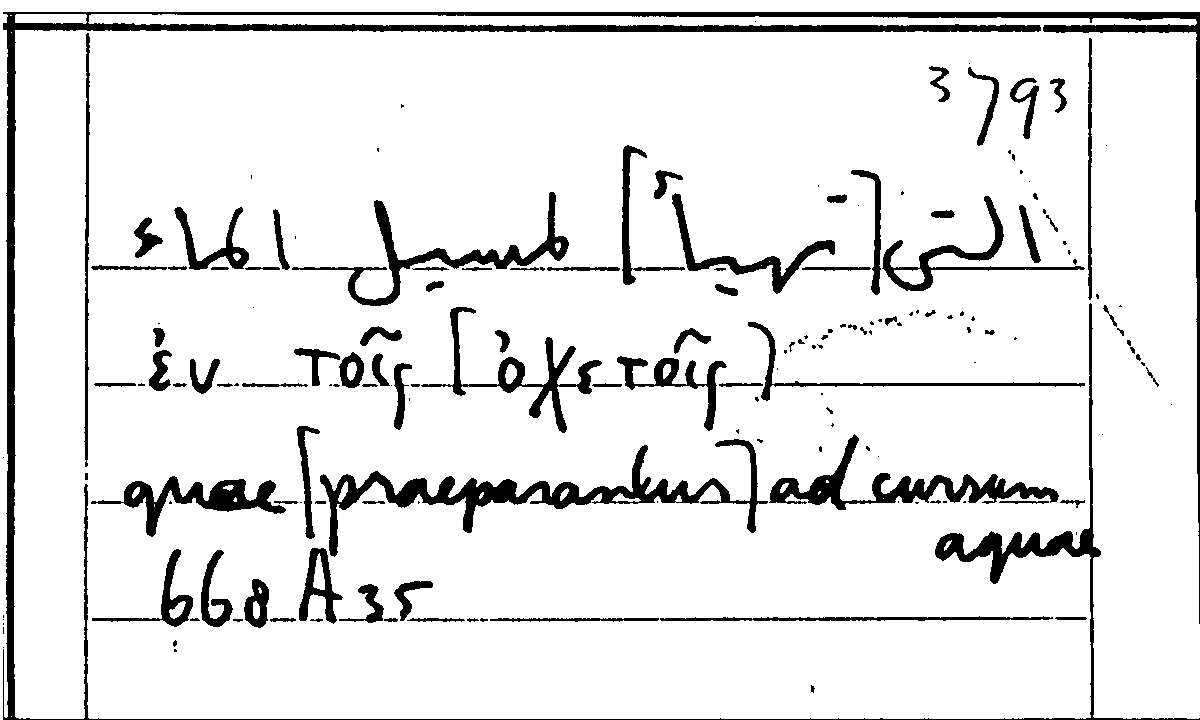 3793
التى [تهيأ] لمسيل الماء
ἐν τοῖς [ὀχετοῖς]
quae [praeparantur] ad cursum
aquae
668 A 35